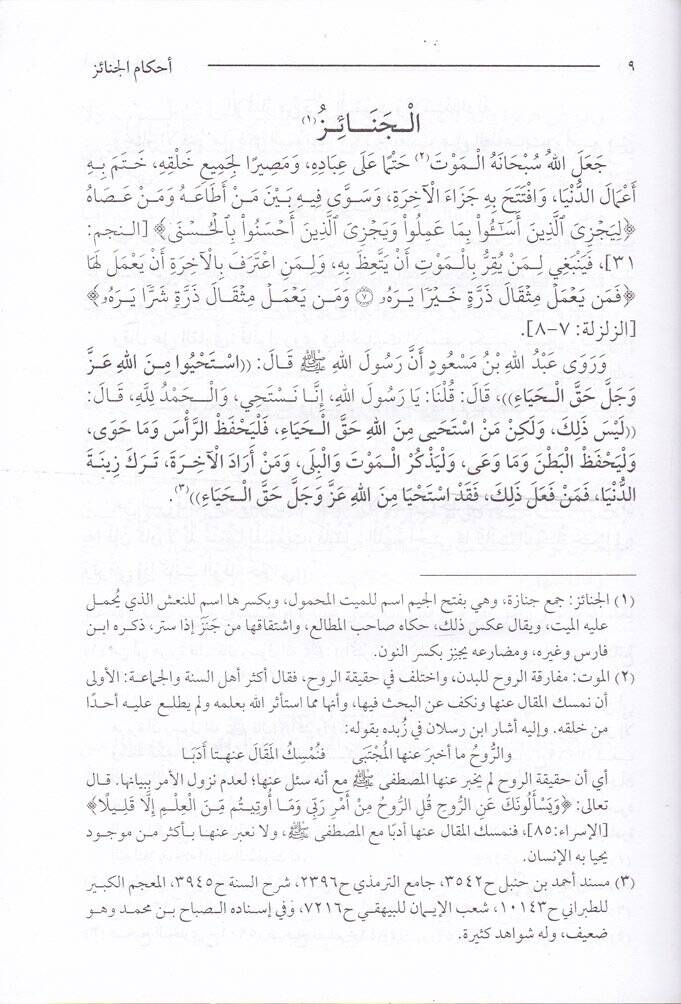 ٩ أحكام الجنائز
الْـجَنَـائِـزُ(١)
جَعَلَ اللهُ سُبْحَانَهُ الْـمَوْتَ(٢) حَتْمًا عَلَى عِبَادِهِ، وَمَصِيرًا لِجَمِيعِ خَلْقِهِ، خَـتَـمَ بِـهِ
أَعْمَالَ الدُّنْيَا، وَافْتَتَحَ بِهِ جَزَاءَ الْآخِرَةِ، وَسَوَّى فِيهِ بَيْنَ مَـنْ أَطَاعَـهُ وَمَـنْ عَـصَاهُ
﴿لِيَجْزِيَ ٱلَّذِينَ أَسَـٰٓـُٔوا۟ بِمَا عَمِلُوا۟ وَيَجْزِيَ ٱلَّذِينَ أَحْسَنُوا۟ بِٱلْحُسْنَى﴾ [النجم:
٣١]، فَيَنْبَغِي لِـمَنْ يُقِرُّ بِالْـمَوْتِ أَنْ يَتَّعِظَ بِهِ، وَلِـمَنِ اعْتَرَفَ بِالْآخِرَةِ أَنْ يَعْمَلَ لَهَا
﴿فَمَن يَعْمَلْ مِثْقَالَ ذَرَّةٍ خَيْرًا يَرَهُۥ ۝٧ وَمَن يَعْمَلْ مِثْقَالَ ذَرَّةٍ شَرًّا يَرَهُۥ﴾
[الزلزلة: ٧-٨].
وَرَوَى عَبْدُ اللهِ بْنُ مَسْعُودٍ أَنَّ رَسُولَ اللهِ ﷺ قَـالَ: ((اسْـتَحْيُوا مِـنَ اللهِ عَـزَّ
وَجَلَّ حَقَّ الْـحَيَاءِ))، قَالَ: قُلْنَا: يَا رَسُولَ اللهِ، إِنَّـا نَـسْتَحِي، وَالْـحَمْدُ لِلّٰهِ، قَـالَ:
((لَيْسَ ذَلِكَ، وَلَكِنْ مَنْ اسْتَحَيَى مِنَ اللهِ حَقَّ الْـحَيَاءِ، فَلْيَحْفَظْ الرَّأْسَ وَمَا حَوَى،
وَلْيَحْفَظْ الْبَطْنَ وَمَا وَعَى، وَلْيَذْكُرْ الْـمَوْتَ وَالْبِلَى، وَمَنْ أَرَادَ الْآخِـرَةَ، تَـرَكَ زِينَـةَ
الدُّنْيَا، فَمَنْ فَعَلَ ذَلِكَ، فَقَدْ اسْتَحْيَا مِنَ اللهِ عَزَّ وَجَلَّ حَقَّ الْـحَيَاءِ))(٣).
(١) الجنائز: جمع جنازة، وهي بفتح الجيم اسم للميت المحمول، وبكسرها اسم للنعش الذي يُحمل
عليه الميت، ويقال عكس ذلك، حكاه صاحب المطالع، واشتقاقها من جَنَزَ إذا ستر، ذكره ابن
فارس وغيره، ومضارعه يجنِز بكسر النون.
(٢) الموت: مفارقة الروح للبدن، واختلف في حقيقة الروح، فقال أكثر أهل السنة والجماعة: الأولى
أن نمسك المقال عنها ونكف عن البحث فيها، وأنها مما استأثر الله بعلمه ولم يطلـع عليـه أحـدًا
من خلقه. وإليه أشار ابن رسلان في زُبده بقوله:
والرُّوحُ ما أخبرَ عنها المُجْتَبَى فنُمْسِكُ المَقَالَ عنهـا أَدَبَـا
أي أن حقيقة الروح لم يخبر عنها المصطفى ﷺ مع أنه سئل عنها؛ لعدم نزول الأمر ببيانها. قال
تعالى: ﴿وَيَسْأَلُونَكَ عَنِ الرُّوحِ قُلِ الرُّوحُ مِنْ أَمْرِ رَبِّي وَمَا أُوتِيتُم مِّنَ الْعِلْـمِ إِلَّا قَلِـيلًا﴾
[الإسراء:٨٥]، فنمسك المقال عنها أدبًا مع المصطفى ﷺ، ولا نعبر عنهـا بـأكثر مـن موجـود
يحيا به الإنسان.
(٣) مسند أحمد بن حنبل ح٣٥٤٢، جامع الترمذي ح٢٣٩٦، شرح السنة ح٣٩٤٥، المعجم الكبير
للطبراني ح١٠١٤٣، شعب الإيمان للبيهقي ح٧٢١٦، وفي إسناده الصباح بن محمد وهـو
ضعيف، وله شواهد كثيرة.